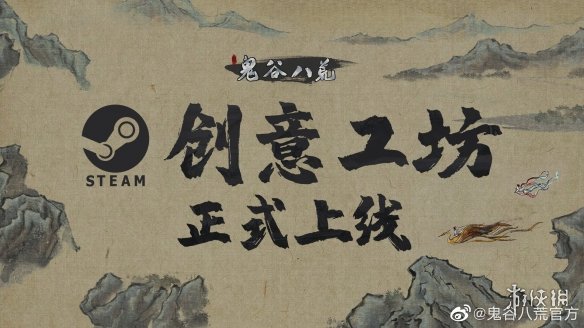 鬼谷八荒
STEAM
创意工坊
正式上线
游侠网
@鬼谷八荒官方